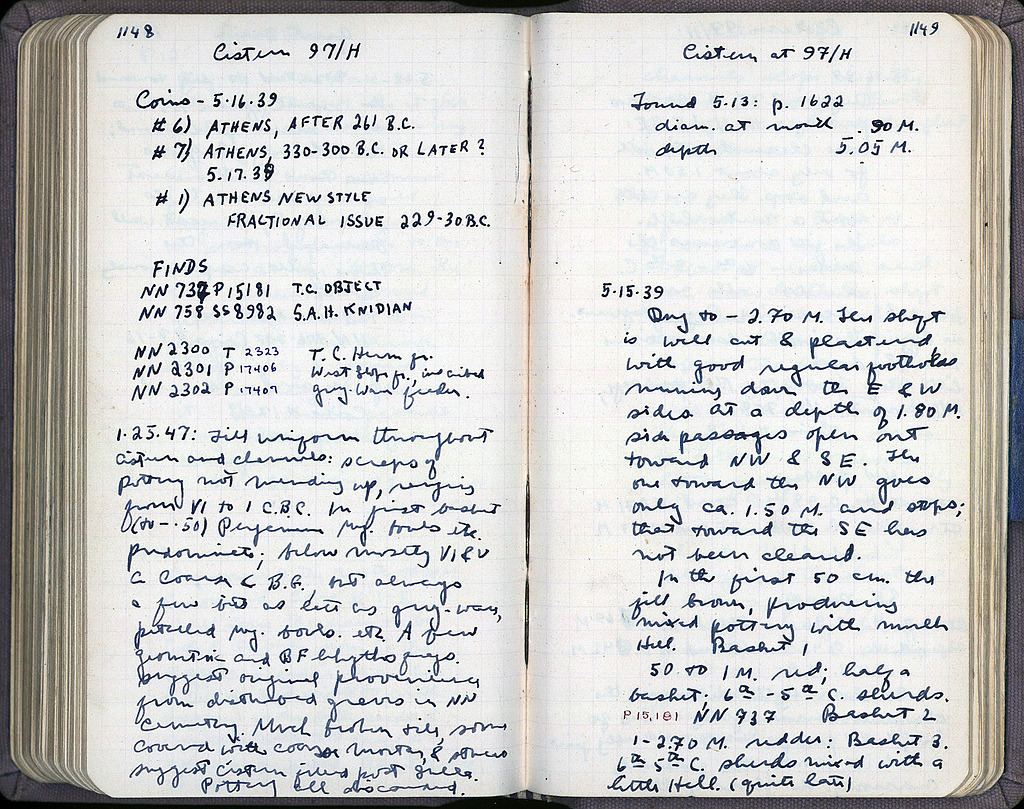 1148
Cistern 97/H
Coins - 5.16.39
# 6) ATHENS, AFTER 261 B.C.
# 7) ATHENS, 330-300 B.C. OR LATER ?
5.17.39
# 1) ATHENS NEW STYLE
FRACTIONAL ISSUE 229-30 B.C.
FINDS
NN 737 P 15181 T.C. OBJECT
NN 758 SS 8982 S.A.H. KNIDIAN
NN 2300 T 2323 T.C. Herm fr.
NN 2301 P 17406 West Slope fr., inscribed
NN 2302 P 17407 grey-Ware feeder.
1.25.47: Fill uniform throughout
cistern and channels: scraps of
pottery not mending up, ranging
from VI to I C.B.C. In first basket
(.00--.50) Pergamene Mg. bowls etc.
predominate; below mostly VI & V
C coarse & B.G. but always
a few bits as late as grey-ware,
petalled Mg. bowls. etc. A few
geometric and BF lekythos frags.
suggest original provenience
from disturbed graves in NN
cemetery. Much broken tile, some
covered with coarse mortar, & stones
suggest cistern filled post Sulla.
Pottery all discarded.
1149
Cistern at 97/H
Found 5.13: p. 1622
diam. at mouth .90 M.
depth 5.05 M.
5.15.39
Dug to - 2.70 M. The shaft
is well cut & plastered,
with good regular footholes
running down the E & W
sides at a depth of 1.80 M.
side passages open out
toward NW & SE. The
one toward the NW goes
only ca. 1.50 M. and stops;
that toward the SE has
not been cleared.
In the first 50 cm. the
fill brown, producing
mixed pottery with much
Hell. Basket 1
50 to 1 M. red; half a
basket; 6th - 5th C. sherds.
P 15,181 NN 737 Basket 2
1-2.70 M. redder: Basket 3.
6th 5th C. sherds mixed with a
little Hell. (quite late)